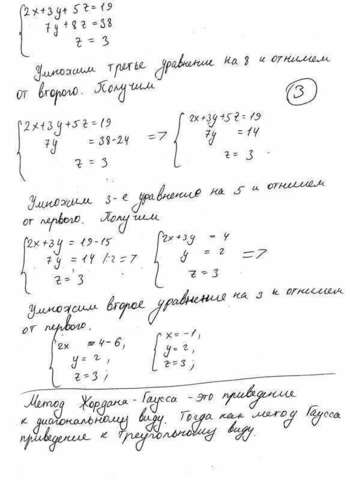 2x+3y+5z=19
7y+8z=38
z=3
Умножим третье уравнение на 8 и отнимем
от второго. Получим
3
2x+3y+5z=19
7y = 38-24
z = 3
=>
2x+3y+5z=19
7y = 14
z = 3.
Умножим 3-е уравнение на 5 и отнимем
от первого. Получим
2x+3y = 19-15
7y = 14 /:7
z = 3
=>
2x+3y = 4
y = 2
z = 3
=>
Умножим второе уравнение на 3 и отнимем
от первого.
2x = 4-6,
y = 2,
z = 3;
x = -1,
y = 2,
z = 3;
Метод Жордана-Гаусса - это приведение
к диагональному виду. Тогда как метод Гаусса
приведение к треугольному виду.